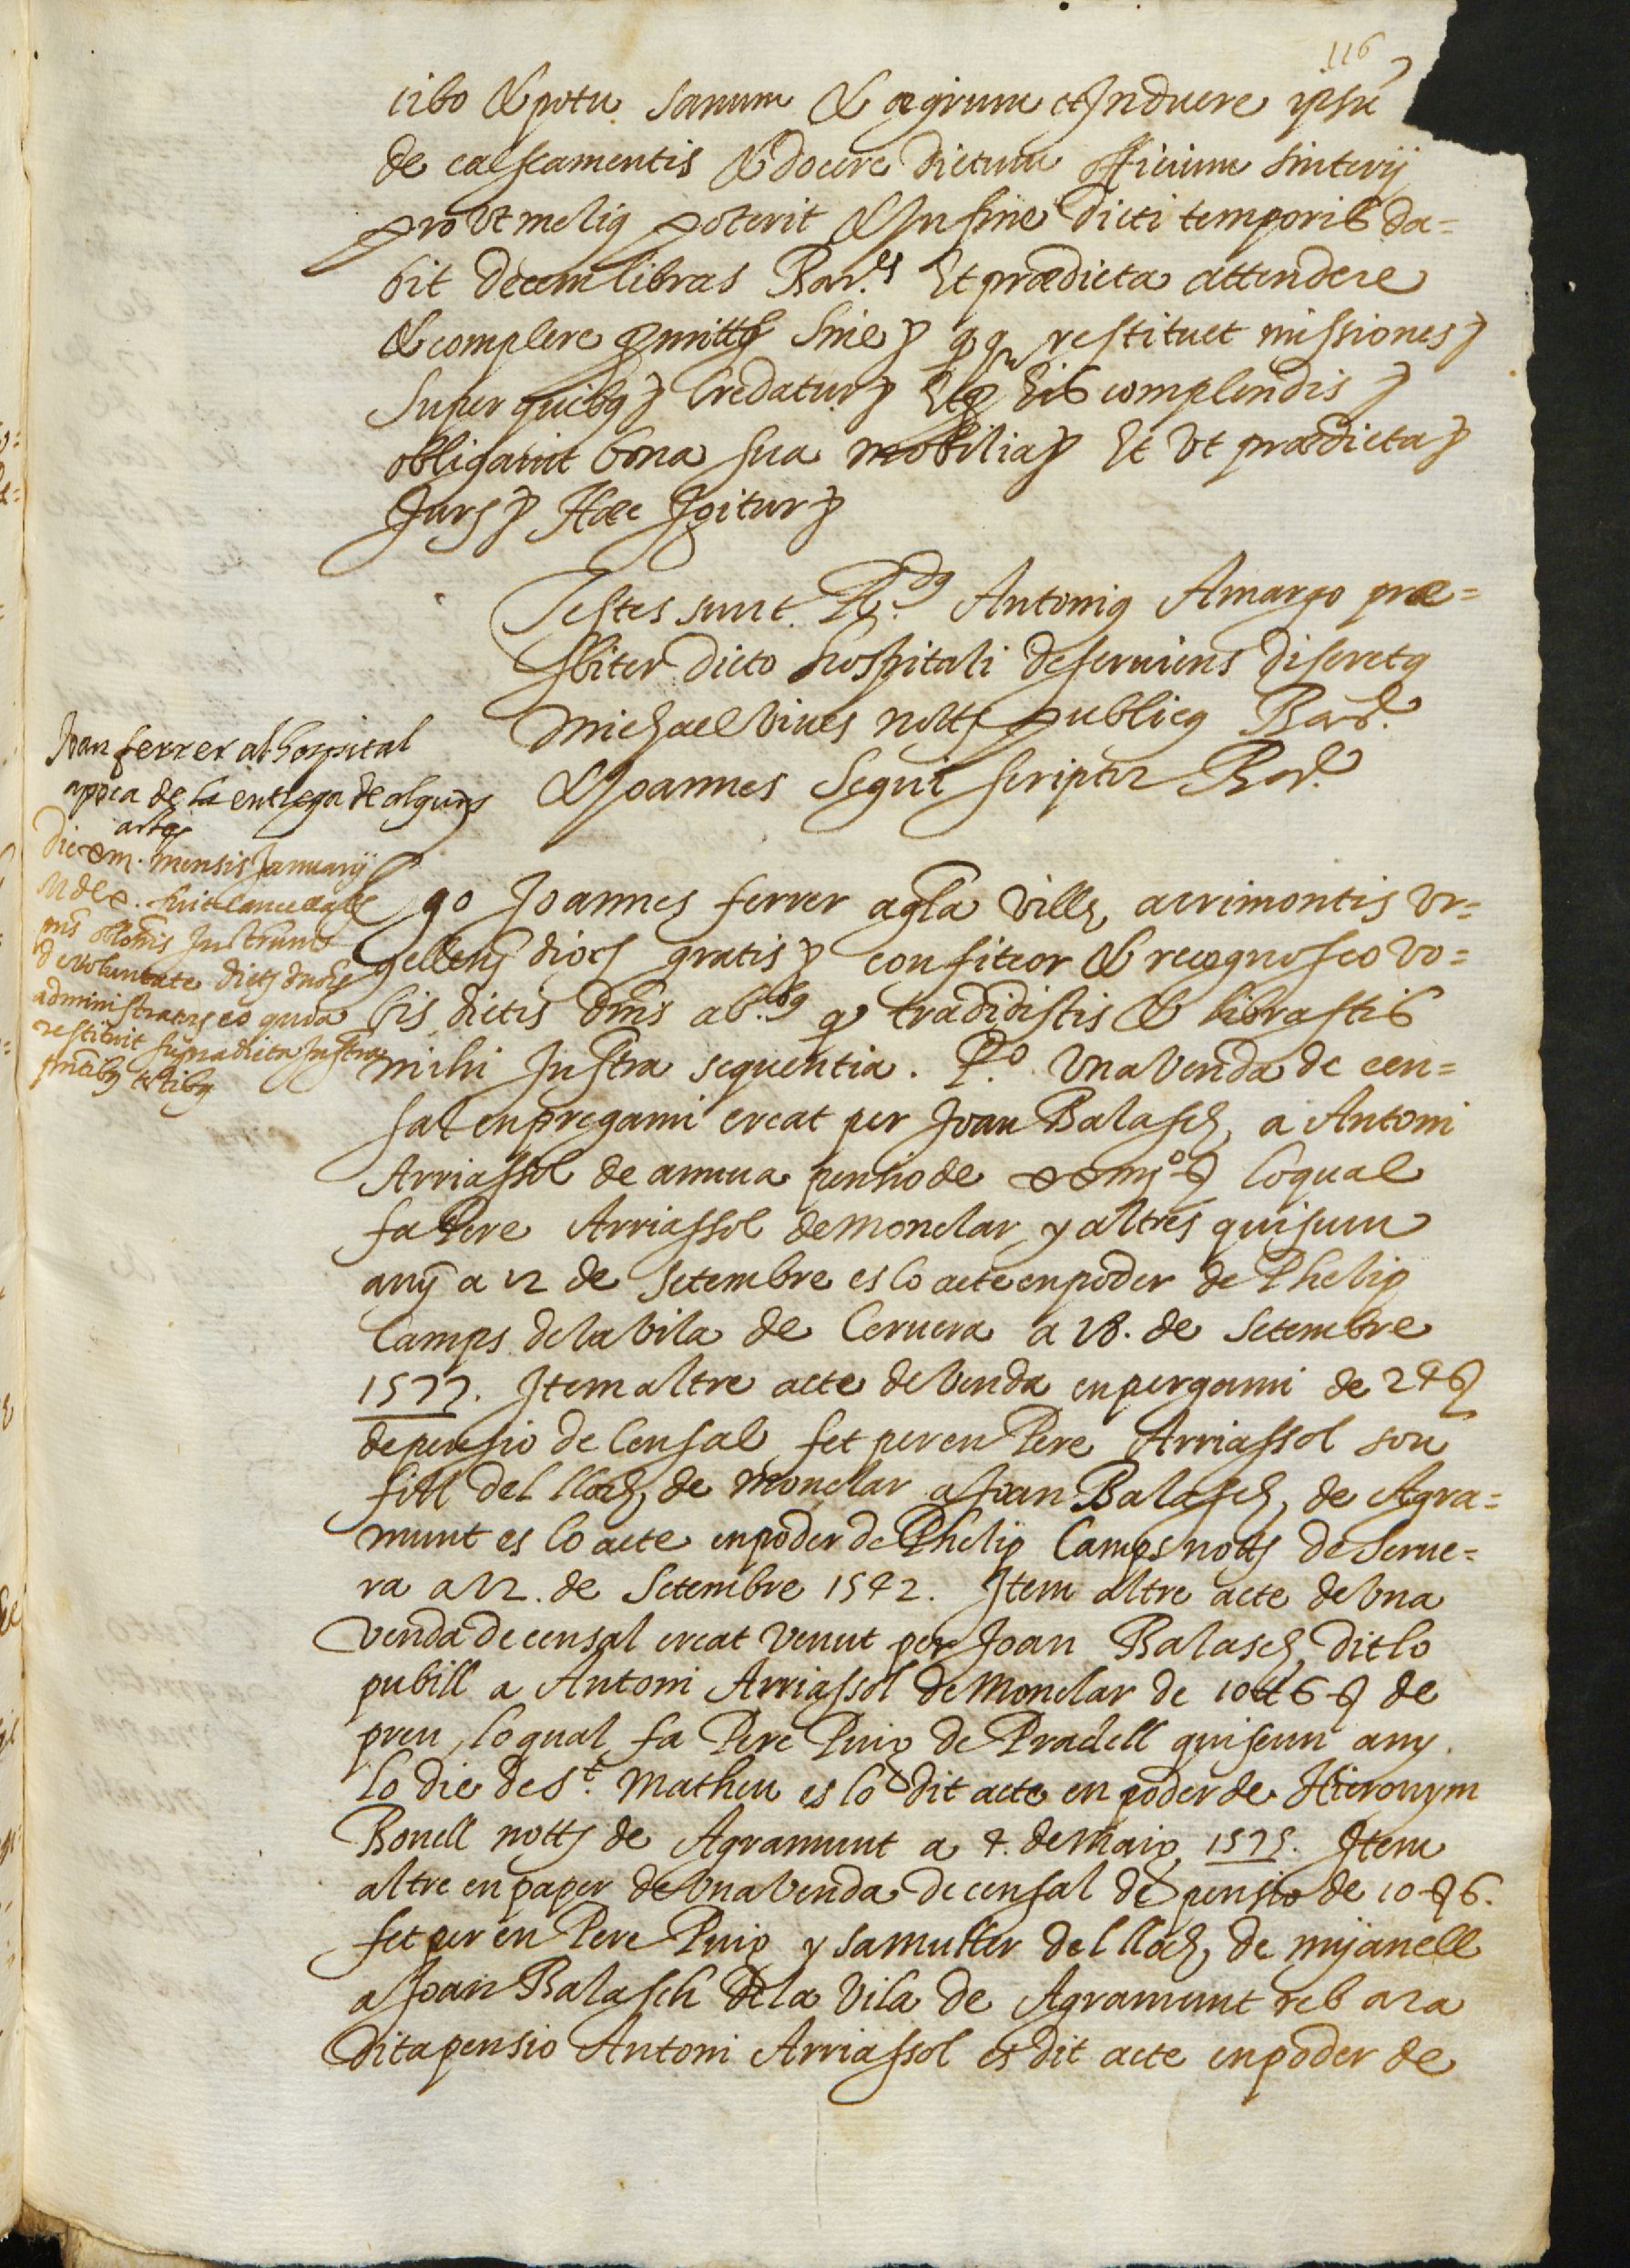 116
cibo & potu sanum & ægrum et Induere ipsū
de calseamentis & docere dictum officium sinterij
prout meliq poterit & In fine dicti temporis da=
bit decem libras Bar.es Et prædicta attendere
& complere promittit sine & restituet missiones
super quibq credatur Et pro his complendis
obligavit bona sua mobilia Et Vt prædicta
Jurs Hæc Igitur
Testes sunt R.dq Antoniq Amargo præ=
sbiter dicto hospitali deserviens discretq
Michael Vives notts publicq Bar.e
& Joannes Segui scriptor Bar.e
Joan ferrer al hospital
apoca de la entrega de alguns
actes
die mensis Januarij
fuit
Instrum
de voluntate
administra eo quia
restituit supradicta Instra
Ego Joannes ferrer agla Villæ acrimontis Vr=
gelleñ dioc gratis confiteor & recognosco vo=
bis dictis dnis ab.bq q tradidistis & librastis
mihi Instra sequentia. P.o Vna Venda de cen=
sal en pregami creat per Joan Balasch, a Antoni
Arriassol de annua pensio de loqual
fa Pere Arriassol de Monclar y altres quiscun
any a 12 de Setembre es lo acte en poder de Phelip
Camps de la Vila de Cervera a 28. de Setembre
1577. Item altre acte de Venda en pergami de 24 ß
de pensio de Censal fet per en Pere Arriassol son
fill del lloch de Monclar a Joan Balasch, de Agra=
munt es lo acte en poder de Phelip Camps notts de Serve=
ra a 12. de Setembre 1542. Item altre acte de Vna
Venda de censal creat Venut per Joan Balasch dit lo
pubill a Antoni Arriassol de Monclar de 10 tt 6 ß de
preu, loqual fa Pere Puig de Pradell quiscun any
lo die de S.t Matheu es lo dit acte en poder de Hieronym
Bonell notts de Agramunt a 4. de Maig 1575. Item
altre en paper de Vna Venda de censal de pensio de 10 ß 6.
fet per en Pere Puig y sa muller del lloch de mijanell
a Joan Balasch de la Vila de Agramunt reb ara
dita pensio Antoni Arriassol es dit acte en poder de